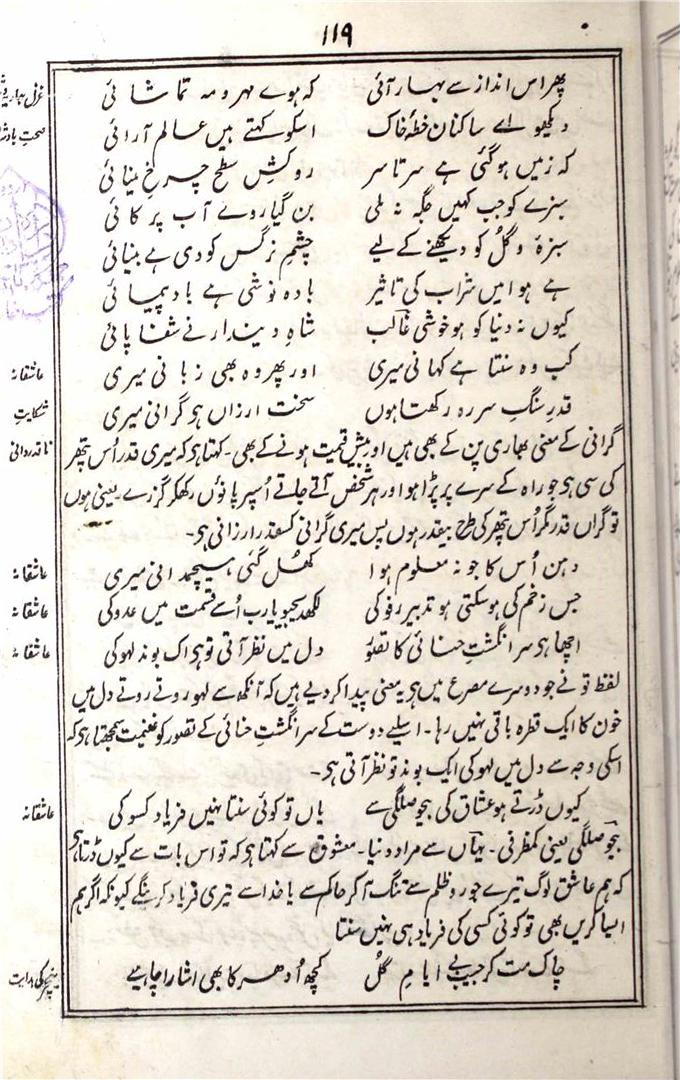 ۱۱۹
پھر اس انداز سے بہار آئی کہ ہوے مہر و مہ تماشائی
غزل بہاریہ
دیکھو اے ساکنان خطۂ خاک اسکو کہتے ہیں عالم آرائی
صحت
کہ زمیں ہو گئی ہے سرتاسر روکشِ سطح چرخِ مینائی
سبزے کو جب کہیں جگہ نہ ملی بن گیا روے آب پر کائی
سبزہ و گل کو دیکھنے کے لیے چشمِ نرگس کو دی ہے بینائی
ہے ہوا میں شراب کی تاثیر بادہ نوشی ہے بادپیمائی
کیوں نہ دنیا کو ہو خوشی غالب شاہِ دیندار نے شفا پائی
کب وہ سنتا ہے کہانی میری اور پھر وہ بھی زبانی میری
عاشقانہ
قدرِ سنگِ سرِ رہ رکھتا ہوں سخت ارزاں ہو گرانی میری
شکایتِ
ناقدردانی
گرانی کے معنی بھاری پن کے بھی ہیں اور بیش قیمت ہونے کے بھی۔ کہتا ہو کہ میری قدر اُس پتھر
کی سی ہو جو راہ کے سرے پر پڑا ہو اور ہر شخص آتے جاتے اُسپر پانوں رکھکر گزرے۔ یعنی ہوں
تو گراں قدر مگر اُس پتھر کی طرح بیقدر ہوں پس میری گرانی کسقدر ارزانی ہو۔
دہن اُس کا جو نہ معلوم ہوا کھل گئی ہیچمدانی میری
عاشقانہ
جس زخم کی ہو سکتی ہو تدبیر رفو کی لکھدیجیو یارب اُسے قسمت میں عدو کی
عاشقانہ
اچھا ہو سرانگشتِ حنائی کا تصوّر دل میں نظر آتی تو ہو اک بوند لہو کی
عاشقانہ
لفظ تو نے جو دوسرے مصرع میں ہو یہ معنی پیدا کر دیے ہیں کہ آنکھ سے لہو روتے روتے دل میں
خون کا ایک قطرہ باقی نہیں رہا۔ اسلیے دوست کے سرانگشتِ حنائی کے تصور کو غنیمت سمجھتا ہو کہ
اسکی وجہ سے دل میں لہو کی ایک بوند تو نظر آتی ہو۔
کیوں ڈرتے ہو عشاق کی بیحوصلگی سے یاں تو کوئی سنتا نہیں فریاد کسو کی
عاشقانہ
بیحوصلگی یعنی کمظرفی۔ یہاں سے مراد دنیا۔ معشوق سے کہتا ہو کہ تو اس بات سے کیوں ڈرتا ہو
کہ ہم عاشق لوگ تیرے جور و ظلم سے تنگ آکر حاکم سے یا خدا سے تیری فریاد کرینگے کیونکہ اگر ہم
ایسا کریں بھی تو کوئی کسی کی فریاد ہی نہیں سنتا
چاک مت کر جیب بے ایامِ گل کچھ اُدھر کا بھی اشارا چاہیے
نیچر کی ہدایت